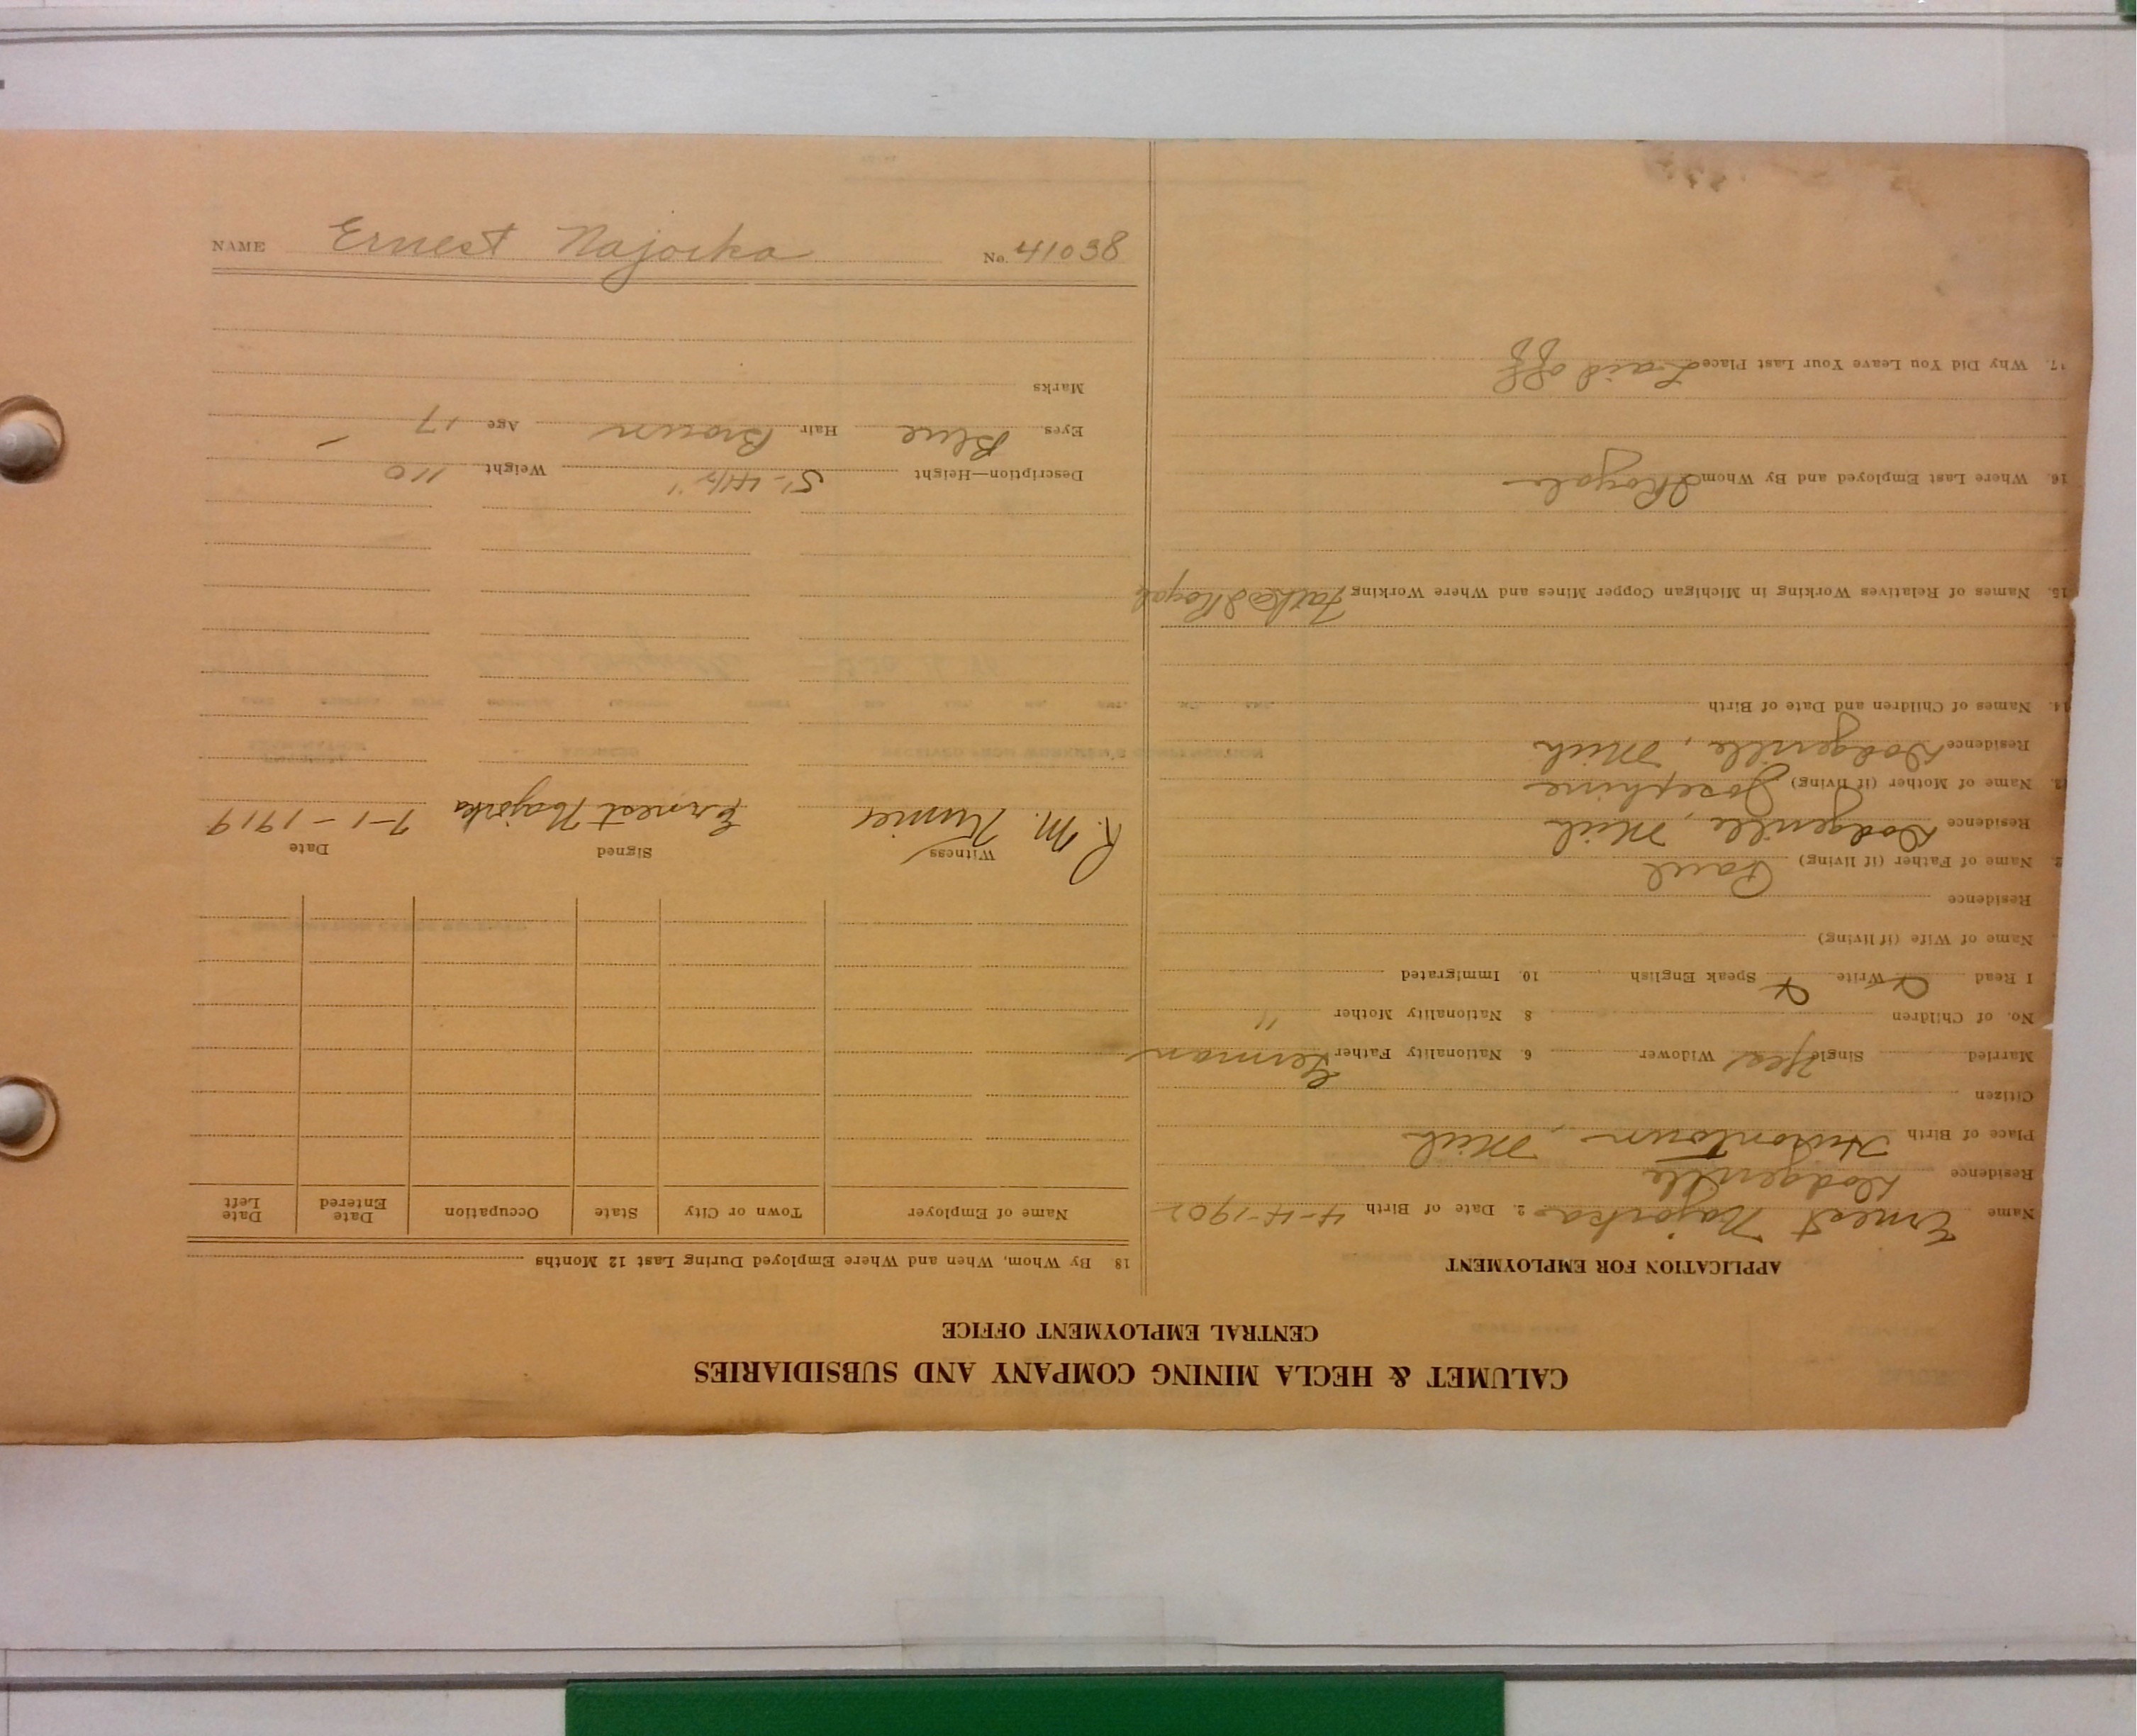 CALUMET & HECLA MINING COMPANY AND SUBSIDIARIES
CENTRAL EMPLOYMENT OFFICE
APPLICATION FOR EMPLOYMENT
Name Ernest Najorka 2. Date of Birth 4-4-1902
Residence Dodgeville
Place of Birth Hurontown, Mich
Citizen
Married Single Yes Widower 6. Nationality Father German
No. of Children 8 Nationality Mother "
I Read Write Speak English 10. Immigrated
Name of Wife (if living)
Residence
2. Name of Father (if living) Paul
Residence Dodgeville, Mich
3. Name of Mother (if living) Josephine
Residence Dodgeville, Mich
14. Names of Children and Date of Birth
15. Names of Relatives Working in Michigan Copper Mines and Where Working Father I Royale
16. Where Last Employed and By Whom I Royale
17. Why Did You Leave Your Last Place Laid off
18 By Whom, When and Where Employed During Last 12 Months
Name of Employer Town or City State Occupation Date Entered Date Left
Witness Signed Date
R. M. Ernest Najorka 7-1-1919
Description—Height 5'-4 1/2" Weight 110
Eyes Blue Hair Brown Age 17
Marks
NAME Ernest Najorka No. 41038